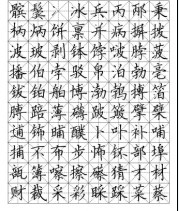 膑鬓冫冰兵丙邴秉
柄炳饼禀并病摒拨
波玻剥钵饽啵脖菠
播伯孛驳帛泊勃亳
钹铂舶博渤鹁搏箔
膊踣薄礴跛簸擘檗
逋钸晡醭卜卟补哺
捕不布步怖钚部埠
瓿簿嚓擦礤猜才材
财裁采彩睬踩菜蔡